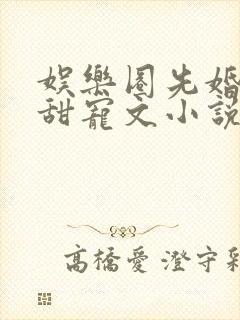 娛樂圈先婚
甜寵文小說
高橋愛 澄守彩